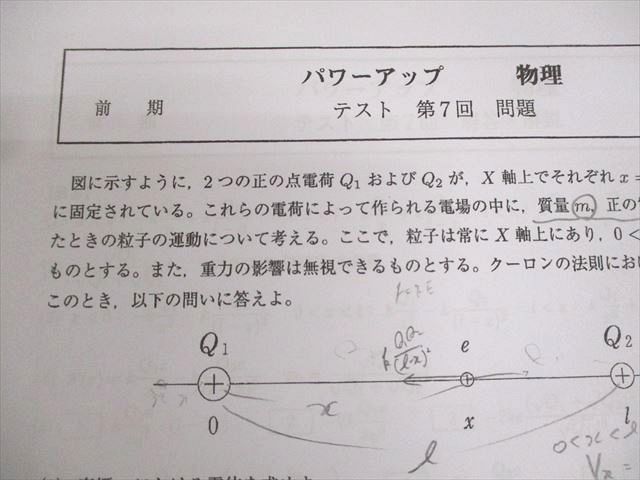 パワーアップ 物理
前 期 テスト 第7回 問題
図に示すように，2つの正の点電荷 Q₁ および Q₂ が，X 軸上でそれぞれ x =
に固定されている。これらの電荷によって作られる電場の中に，質量 m，正の
たときの粒子の運動について考える。ここで，粒子は常に X 軸上にあり，0 <
ものとする。また，重力の影響は無視できるものとする。クーロンの法則にお
このとき，以下の問いに答えよ。
Q₁ e Q₂
+ + +
x
0 x l
l
0<x<l
Vx =